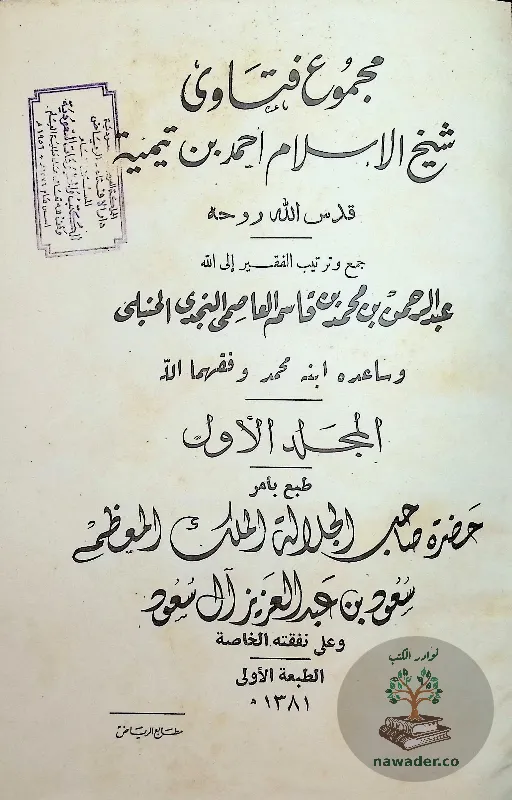 مجموع فتاوى
شيخ الإسلام أحمد بن تيمية
قدس الله روحه
جمع وترتيب الفقير إلى الله
عبد الرحمن بن محمد بن قاسم العاصمي النجدي الحنبلي
وساعده ابنه محمد وفقهما الله
المجلد الأول
طبع بأمر
حضرة صاحب الجلالة الملك المعظم
سعود بن عبد العزيز آل سعود
وعلى نفقته الخاصة
الطبعة الأولى
١٣٨١ ه
مطابع الرياض
نوادر الكتب
nawader.co